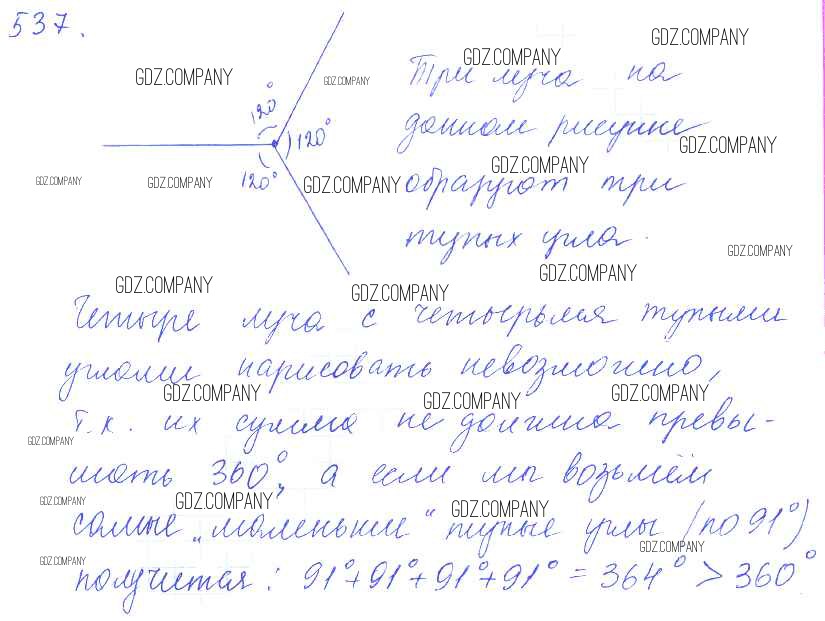 537.
GDZ.COMPANY GDZ.COMPANY GDZ.COMPANY GDZ.COMPANY
120° 120° 120°
Три луча на
данном рисунке
GDZ.COMPANY GDZ.COMPANY
GDZ.COMPANY GDZ.COMPANY GDZ.COMPANY
образуют три
тупых угла.
GDZ.COMPANY GDZ.COMPANY
GDZ.COMPANY GDZ.COMPANY
Четыре луча с четырьмя тупыми
углами нарисовать невозможно,
GDZ.COMPANY GDZ.COMPANY GDZ.COMPANY
т.к. их сумма не должна превы-
GDZ.COMPANY
шать 360°, а если мы возьмём
GDZ.COMPANY GDZ.COMPANY GDZ.COMPANY
самые „маленькие“ тупые углы (по 91°)
GDZ.COMPANY GDZ.COMPANY
получится: 91°+91°+91°+91° = 364° > 360°